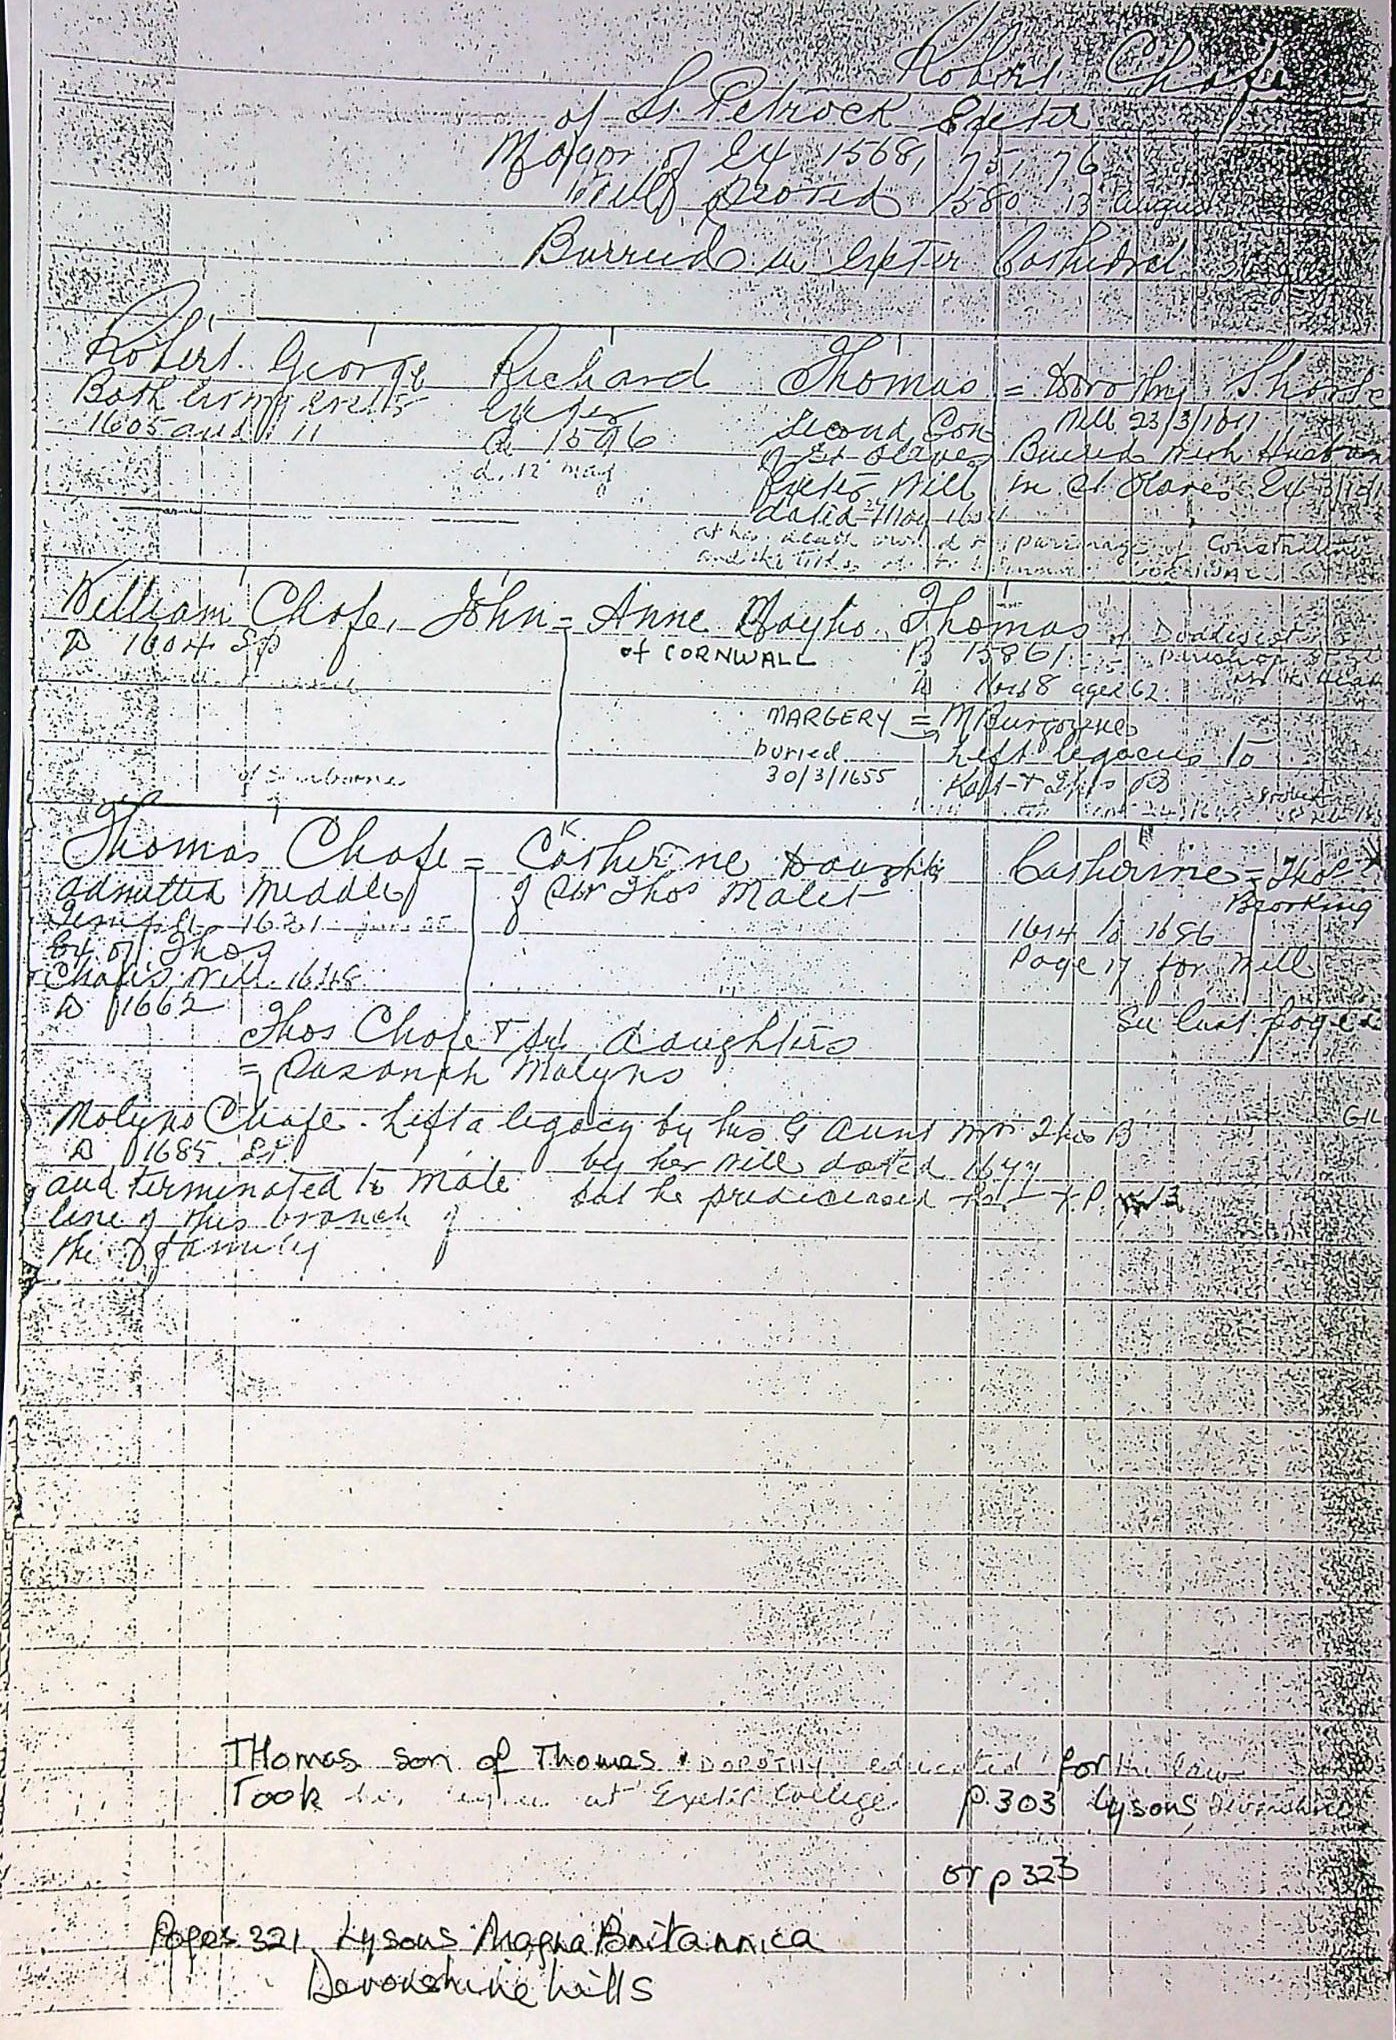 Robert Chafe
of St. Petrock Exeter
Mayor of Ex 1568, 75, 76
Will proved 1580 13 August
Burried in Exeter Cathedral
Robert George Richard Thomas = Dorothy Shorte
Both living
1605 and 11
Exeter
d 1596
d. 12 May
Second Son
of St Olaves
Exeter Will
dated May
Will 23/3/1611
Buried with Husban
in St Olaves Ex
at his death owned
and the
parsonage of Constantine
CORNWALL
William Chafe, John = Anne Mayho Thomas of Doddescot
D 1604 SP
of CORNWALL
B 15861
D 1648 aged 62
parish of St
MARGERY = M Burgoyne
buried
30/3/1655
Left legacies to
Kath + Thos B
Thomas Chafe = Catherine Daughter
K
of Sir Thos Malet
admitted Middle
Temple 1621
Ex of Thos
Chafes Will 1648
D 1662
Catherine = Thos
Brocking
1614 to 1686
Page 17 for Will
See last page
Thos Chafe + daughters
= Susanah Molyns
Molyns Chafe. Left a legacy by his G Aunt Mrs Thos B
D 1685
by her Will dated 1677
and terminated to male
but he predeceased her
line of this branch of
the family
Thomas son of Thomas + DOROTHY educated for the law
Took his degree at Exeter College p. 303 Lysons Devonshire
or p 323
Pages 321 Lysons Magna Britannica
Devonshire Wills